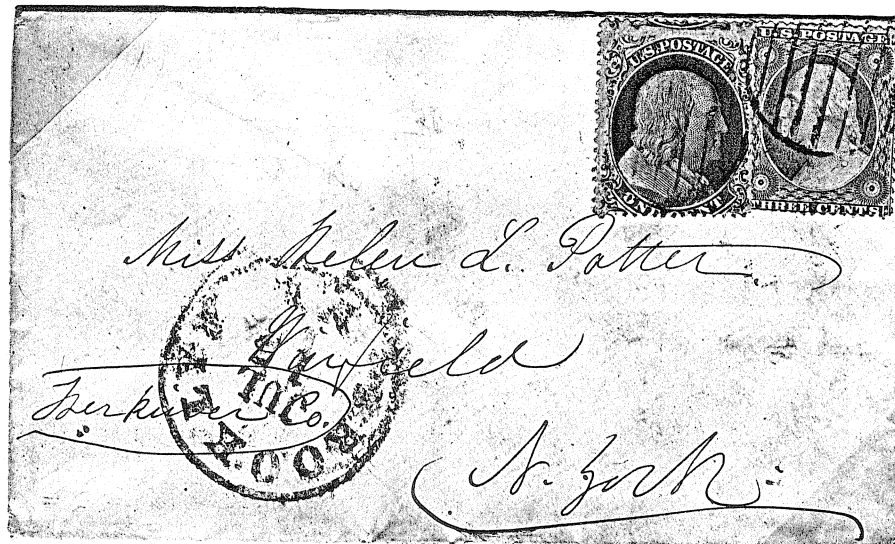 U.S. POSTAGE
ONE CENT
U.S. POSTAGE
THREE CENTS
Miss Helen L. Potter
Winfield
Herkimer Co.
N. York
BROOKLYN
JUL